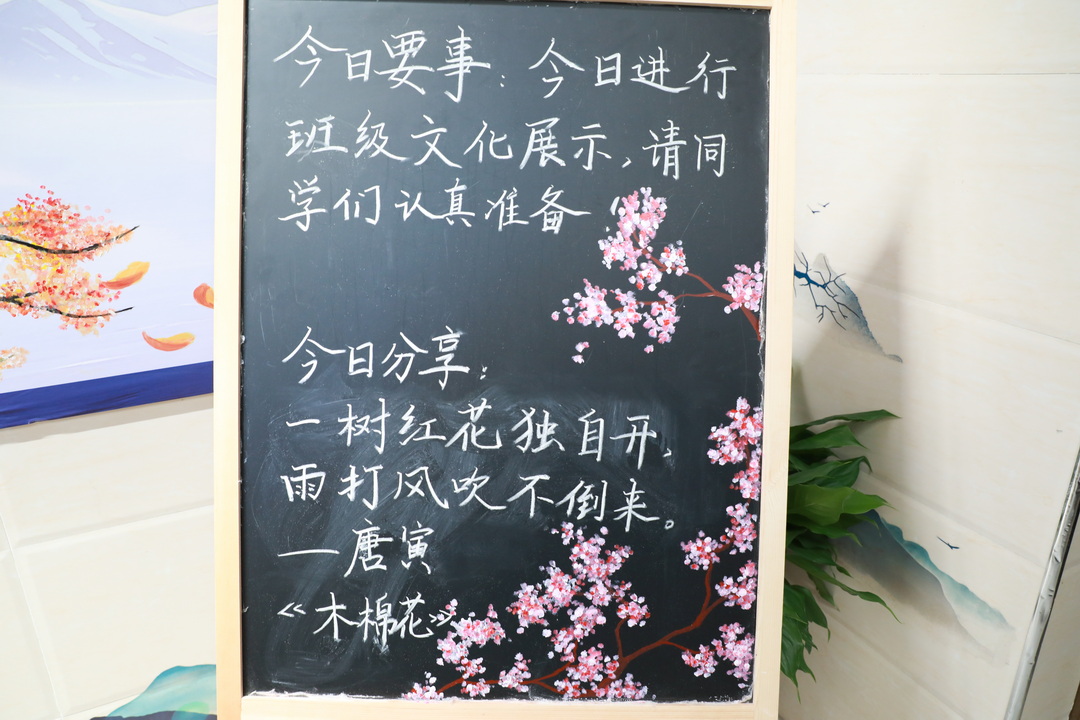 今日要事：今日进行
班级文化展示，请同
学们认真准备
今日分享：
一树红花独自开，
雨打风吹不倒来。
—唐寅
《木棉花》